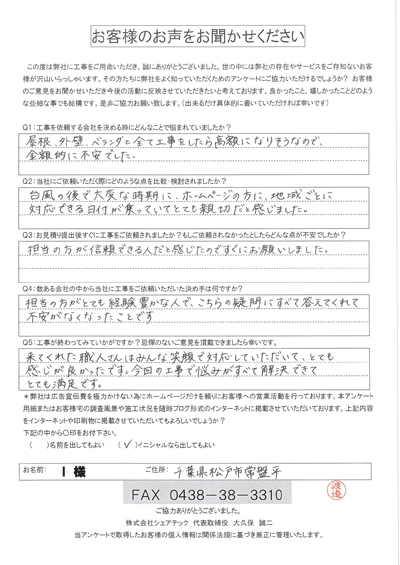 お客様のお声をお聞かせください
この度は弊社に工事をご用命いただき、誠にありがとうございました。世の中には弊社の存在やサービスをご存知ないお客
様が沢山いらっしゃいます。その方たちに弊社をよく知っていただくためのアンケートにご協力いただけるでしょうか? お客様
のご意見をお聞かせいただき今後の活動に反映させていただきたいと考えております。良かったこと、嬉しかったことどのよう
な些細な事でも結構です。是非ご協力お願い致します。(出来るだけ具体的に書いていただければ幸いです)
Q1:工事を依頼する会社を決める時にどんなことで悩まれていましたか?
屋根、外壁、ベランダと全て工事をしたら高額になりそうなので、
金額的に不安でした。
Q2:当社にご依頼いただく際にどのような点を比較・検討されましたか?
台風の後で大変な時期に、ホームページの方に、地域ごとに
対応できる日付が乗っていてとても親切だと感じました。
Q3:お見積り提出後すぐに工事をご依頼されましたか?もしご依頼されなかったとしたらどんな点が不安でしたか?
担当の方が信頼できる人だと感じたのですぐにお願いしました。
Q4:数ある会社の中から当社に工事をご依頼いただいた決め手は何ですか?
担当の方がとても経験豊かな人で、こちらの疑問にすべて答えてくれて
不安がなくなったことです
Q5:工事が終わってみていかがですか?忌憚のないご意見を頂戴できましたら幸いです。
来てくれた職人さんはみんな笑顔で対応していただいて、とても
感じが良かったです。今回の工事で悩みがすべて解決できて
とても満足です。
*弊社は広告宣伝費を極力かけない為にホームページだけを頼りにお客様への営業活動を行っております。本アンケート
用紙またはお客様宅の調査風景や施工状況を随時ブログ形式のインターネットに掲載させていただいております。上記内容
をインターネットや印刷物に掲載させていただいてもよろしいでしょうか?
下記の中から○印をお付け下さい。
( )名前を出してもよい (✓)イニシャルなら出してもよい
お名前: I 様 ご住所: 千葉県松戸市常盤平
FAX 0438-38-3310
渡邉
ご協力ありがとうございました。
株式会社シェアテック 代表取締役 大久保 誠二
当アンケートで取得したお客様の個人情報は関係法規に基づき厳正に管理いたします。